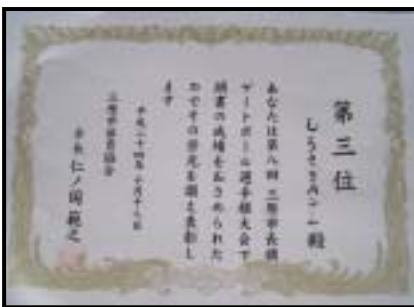 第三位
しらさぎチーム 殿
あなたは第八回 三原市長旗
ゲートボール選手権大会で
頭書の成績をおさめられた
のでその栄光を讃え表彰し
ます
平成二十四年十月十八日
三原市体育協会
会長 仁ノ岡 範之